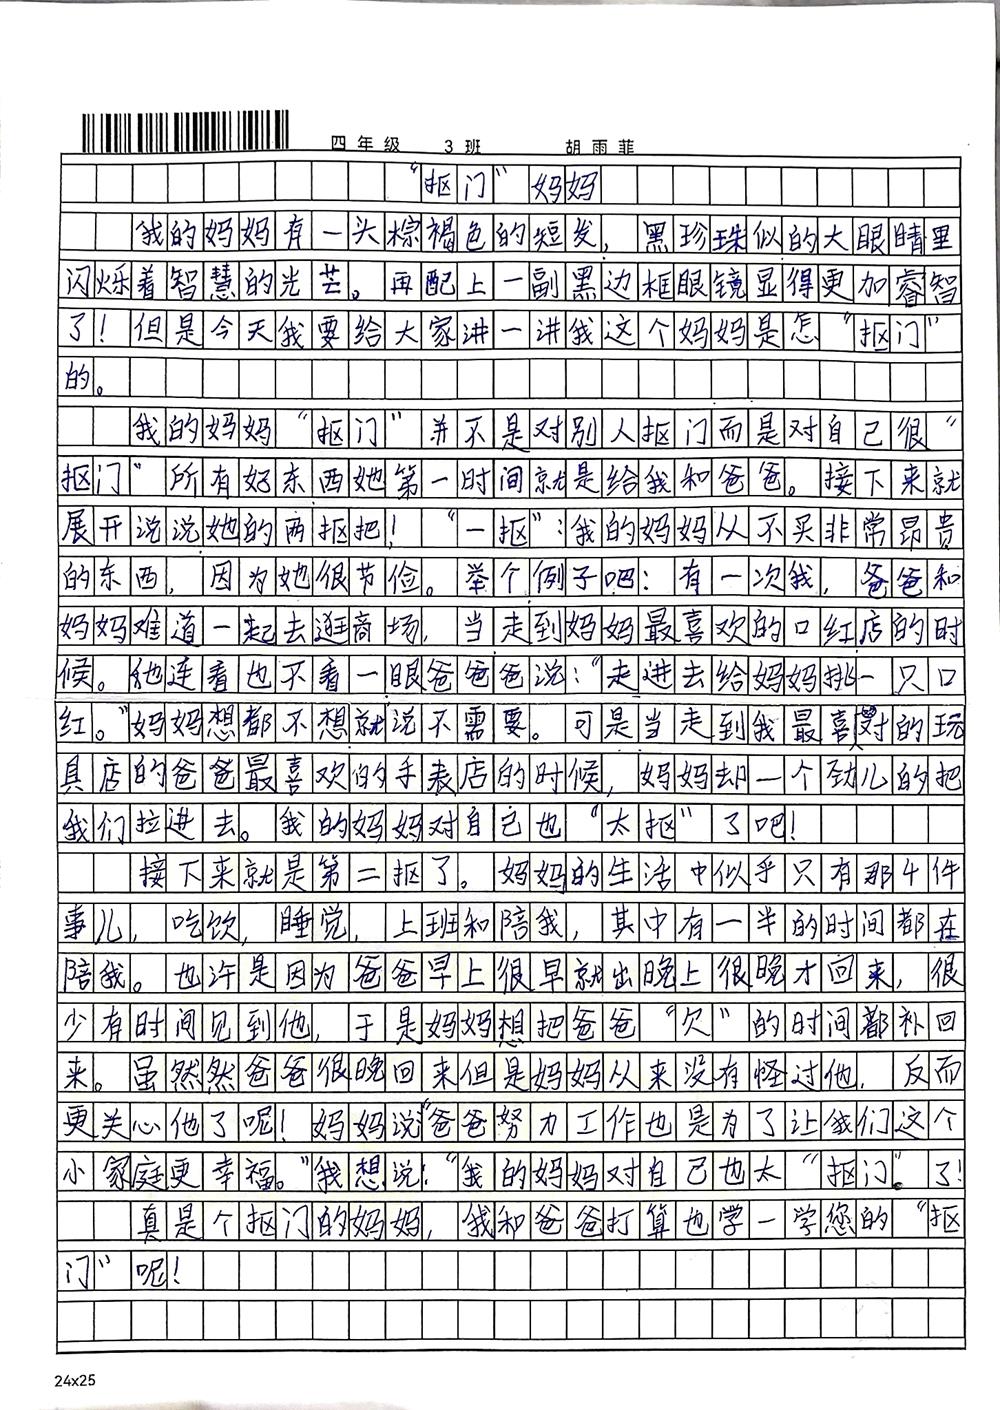 四年级 3班 胡雨菲
“抠门”妈妈
我的妈妈有一头棕褐色的短发，黑珍珠似的大眼睛里
闪烁着智慧的光芒。再配上一副黑边框眼镜显得更加睿智
了！但是今天我要给大家讲一讲我这个妈妈是怎“抠门”
的。
我的妈妈“抠门”并不是对别人抠门而是对自己很“
抠门”所有好东西她第一时间就是给我和爸爸。接下来就
展开说说她的两抠把！“一抠”：我的妈妈从不买非常昂贵
的东西，因为她很节俭。举个例子吧：有一次我，爸爸和
妈妈难道一起去逛商场，当走到妈妈最喜欢的口红店的时
候。他连看也不看一眼爸爸爸说：“走进去给妈妈挑一只口
红。”妈妈想都不想就说不需要。可是当走到我最喜对的玩
具店的爸爸最喜欢的手表店的时候，妈妈却一个劲儿的把
我们拉进去。我的妈妈对自己也“太抠”了吧！
接下来就是第二抠了。妈妈的生活中似乎只有那4件
事儿，吃饮，睡觉，上班和陪我，其中有一半的时间都在
陪我。也许是因为爸爸早上很早就出晚上很晚才回来，很
少有时间见到他，于是妈妈想把爸爸“欠”的时间都补回
来。虽然然爸爸很晚回来但是妈妈从来没有怪过他，反而
更关心他了呢！妈妈说“爸爸努力工作也是为了让我们这个
小家庭更幸福。”我想说：“我的妈妈对自己也太“抠门”。了！
真是个抠门的妈妈，我和爸爸打算也学一学您的“抠
门”呢！
24x25